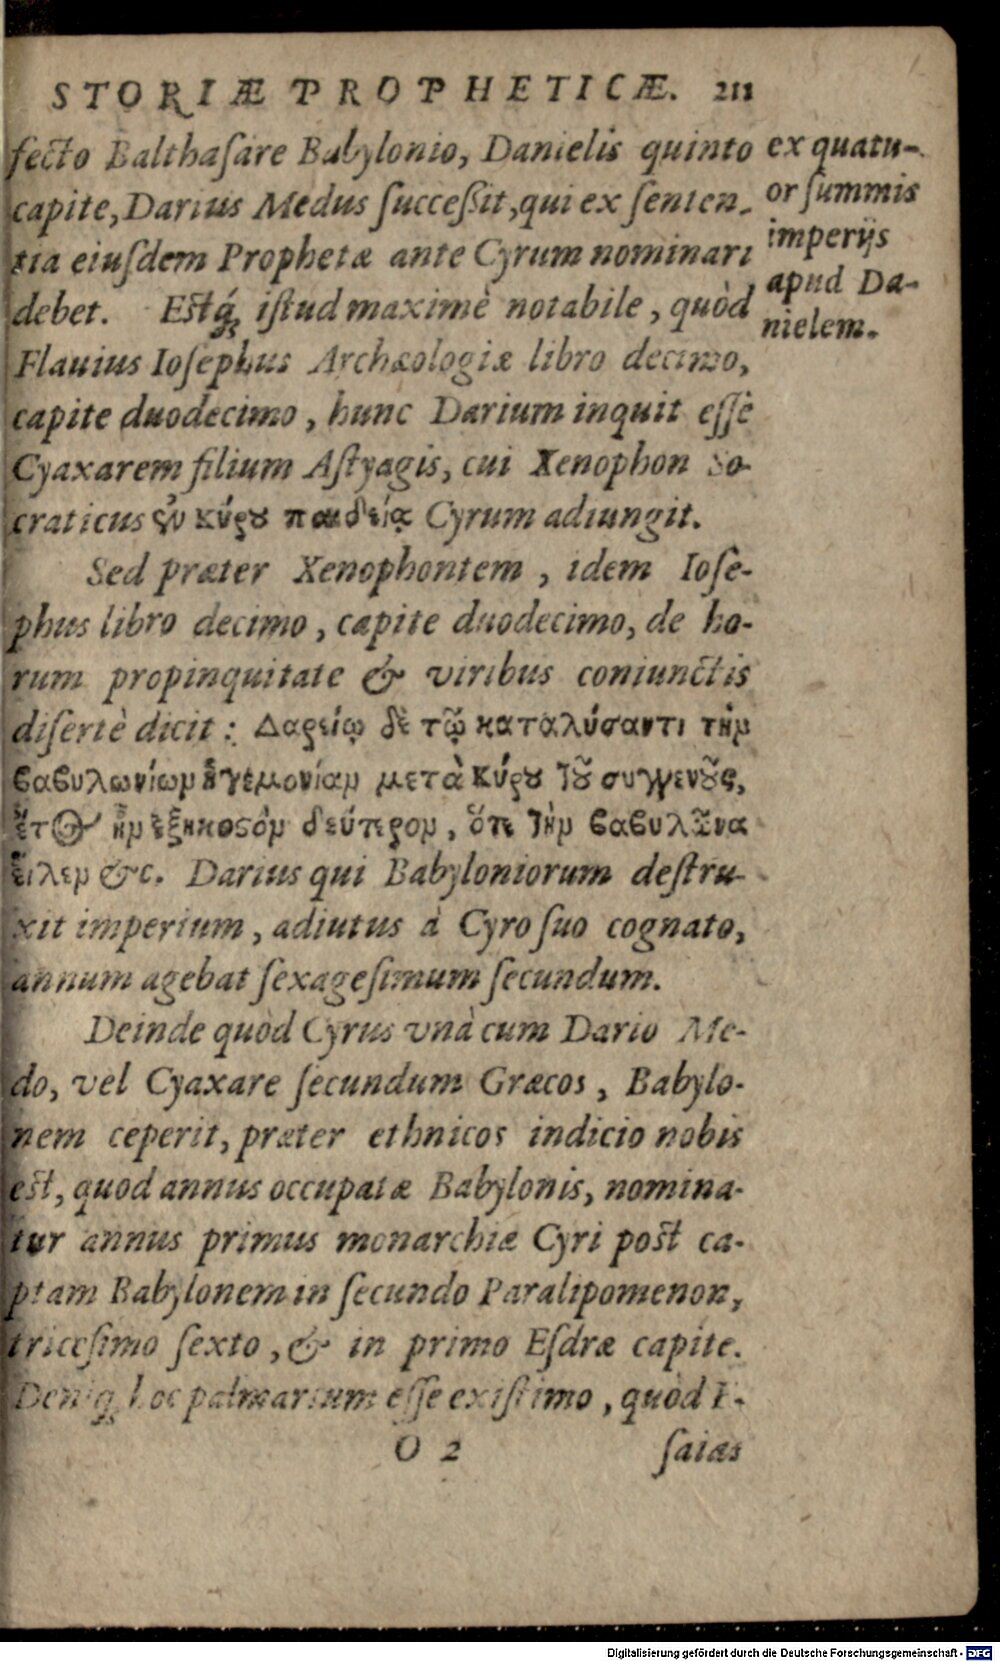 STORIÆ PROPHETICÆ. 211
fecto Balthaſare Babylonio, Danielis quinto
capite, Darius Medus ſucceßit, qui ex ſenten-
tia eiuſdem Prophetæ ante Cyrum nominari
debet. Estq́; iſtud maximè notabile, quòd
Flauius Ioſephus Archæologiæ libro decimo,
capite duodecimo, hunc Darium inquit eſſe
Cyaxarem filium Aſtyagis, cui Xenophon So-
craticus ἐν κύρου παιδείᾳ Cyrum adiungit.
Sed præter Xenophontem, idem Ioſe-
phus libro decimo, capite duodecimo, de ho-
rum propinquitate & viribus coniunctis
diſertè dicit: Δαρείῳ δὲ τῷ καταλύσαντι τὴν
βαβυλωνίων ἡγεμονίαν μετὰ Κύρου τοῦ συγγενοῦς,
ἔτος ἦν ἑξηκοστὸν δεύτερον, ὅτε τὴν βαβυλῶνα
εἷλεν &c. Darius qui Babyloniorum deſtru-
xit imperium, adiutus à Cyro ſuo cognato,
annum agebat ſexageſimum ſecundum.
Deinde quòd Cyrus vnà cum Dario Me-
do, vel Cyaxare ſecundum Græcos, Babylo-
nem ceperit, præter ethnicos indicio nobis
est, quod annus occupatæ Babylonis, nomina-
tur annus primus monarchiæ Cyri post ca-
ptam Babylonem in ſecundo Paralipomenon,
triceſimo ſexto, & in primo Eſdræ capite.
Deniq; hoc palmarium eſſe exiſtimo, quòd I-
O 2 ſaias
ex quatu-
or ſummis
imperijs
apud Da-
nielem.
Digitalisierung gefördert durch die Deutsche Forschungsgemeinschaft - DFG